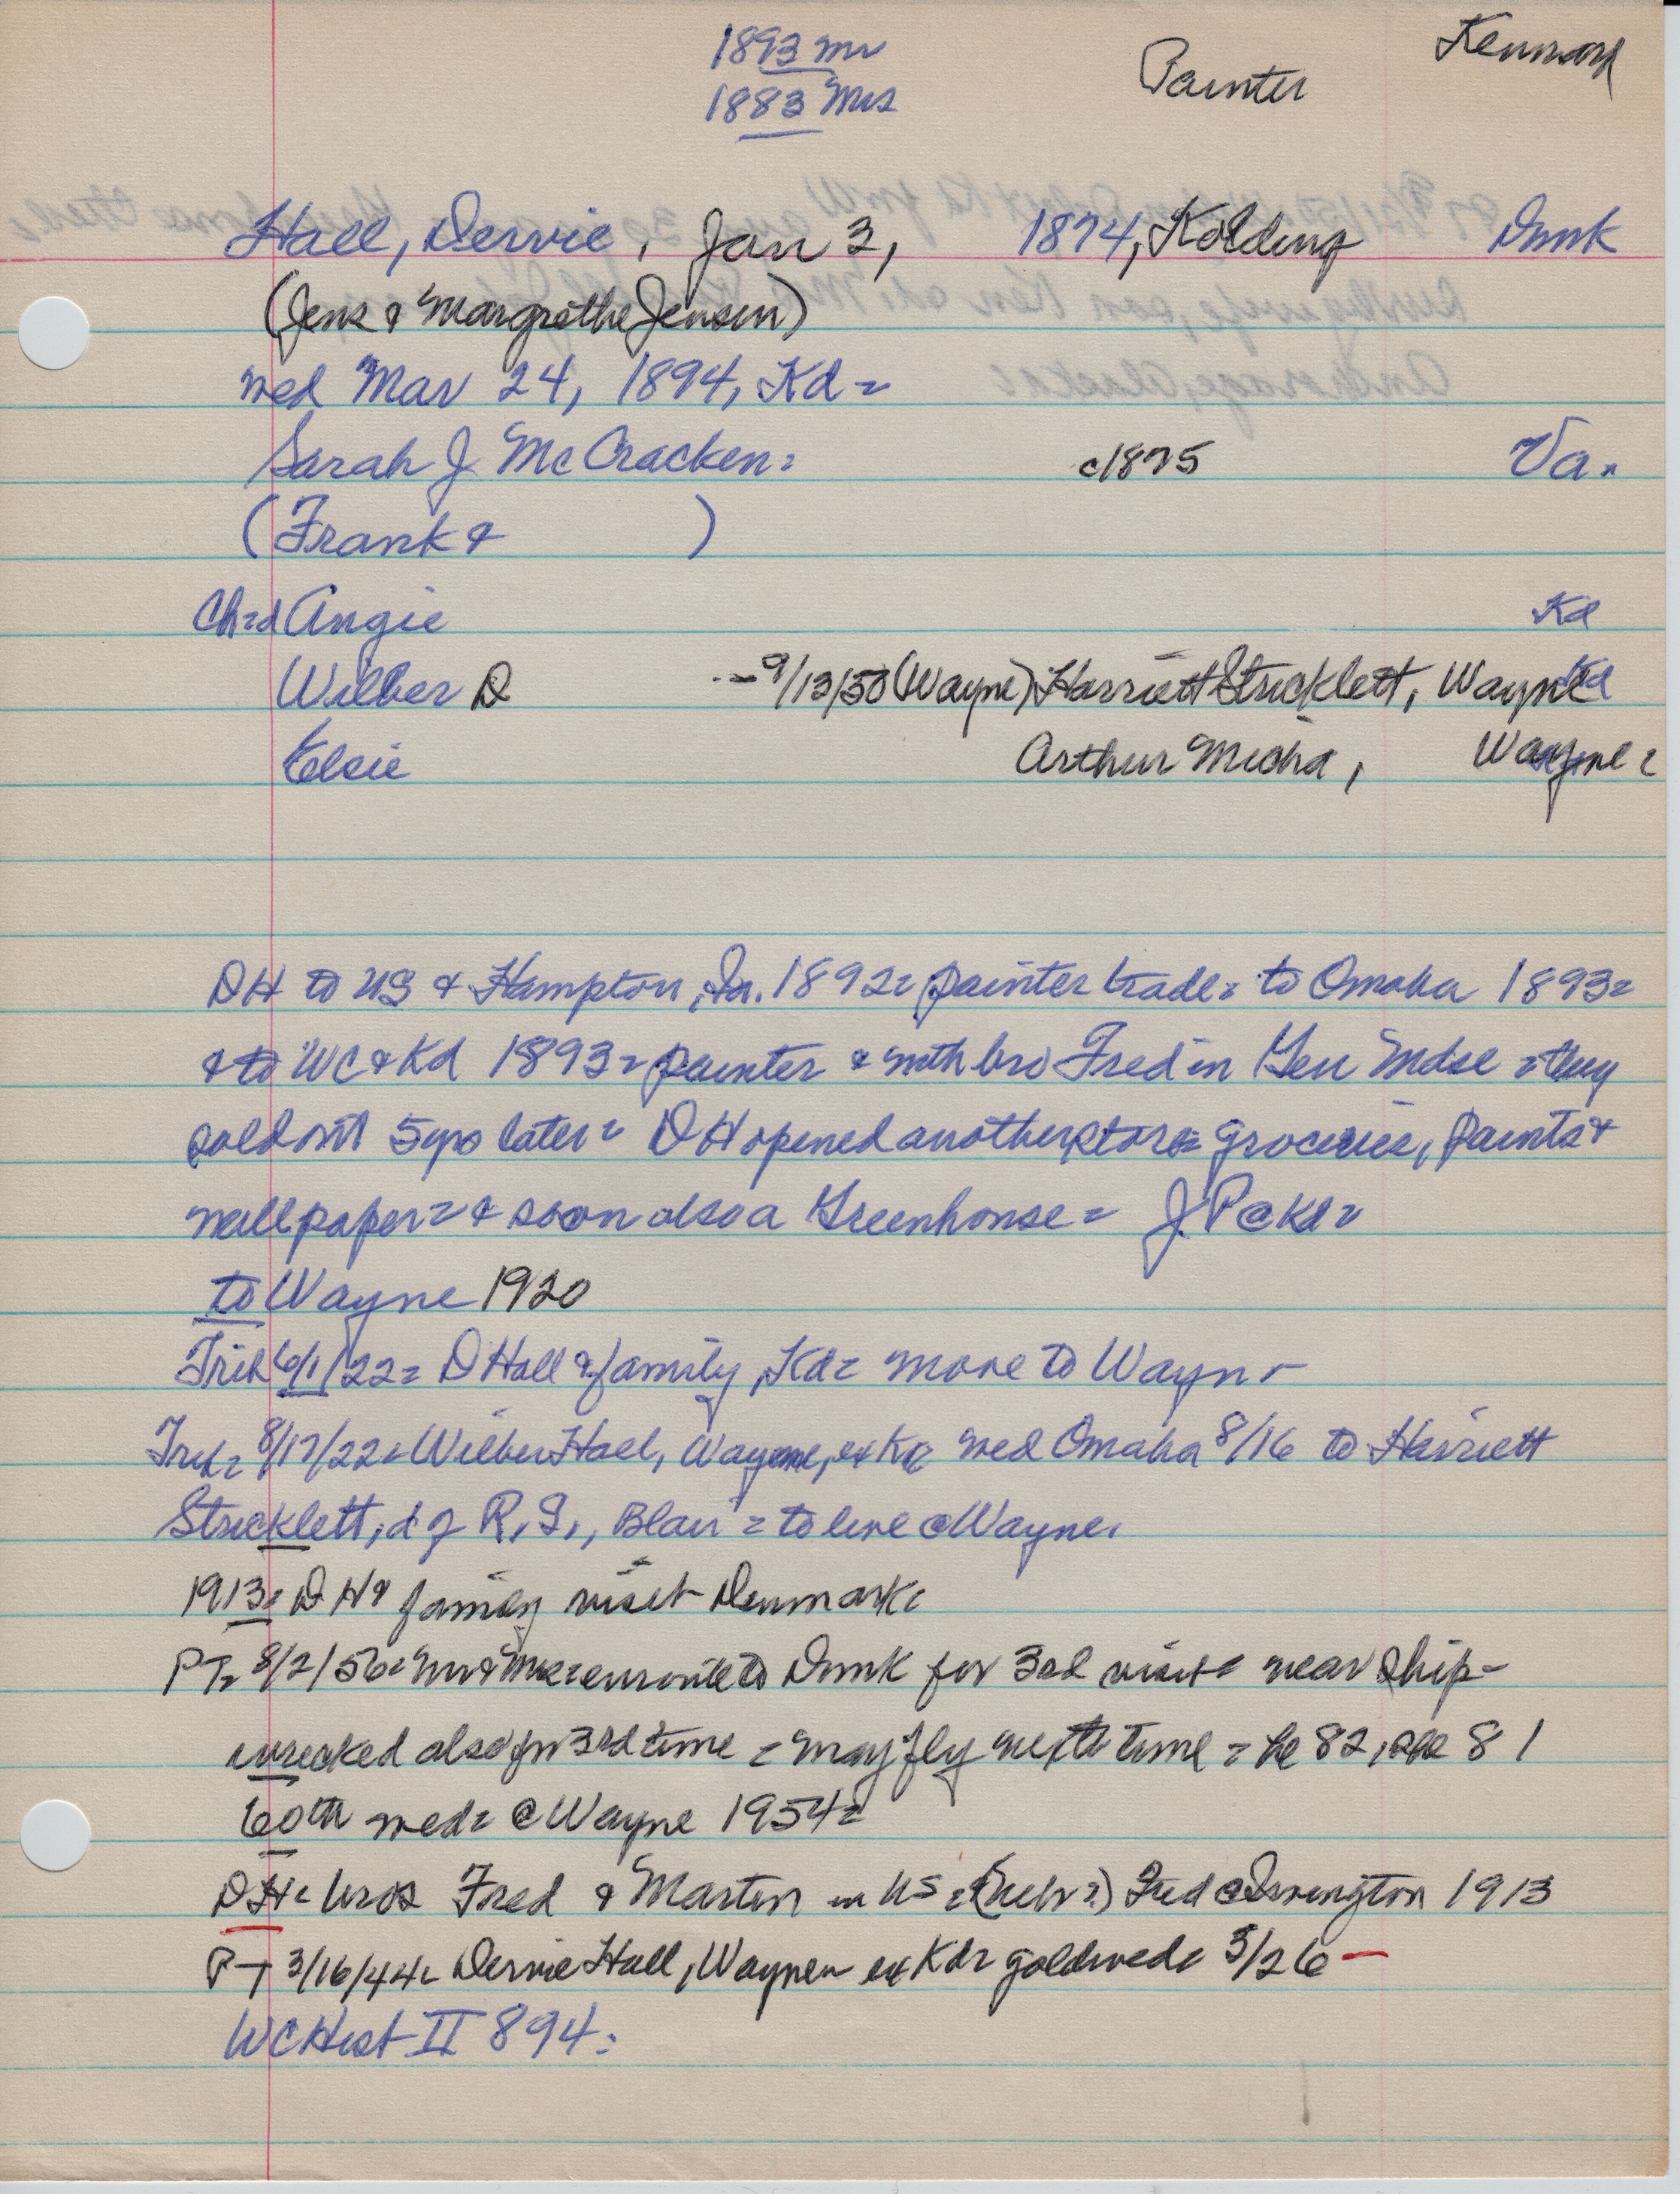 1893 Mr
1883 Mrs
Painter
Kennard
Hall, Dervie, Jan 3, 1874, Kolding Dmk
(Jens & Margrethe Jensen)
wed Mar 24, 1894, Kd =
Sarah J. McCracken = c1875 Va.
(Frank & )
Ch = d Angie Kd
Wilber D -- 9/13/50 (Wayne) Harriett Stricklett, Wayne
Elsie Arthur , Wayne =
DH to US & Hampton, Ia. 1892 = painter trade = to Omaha 1893 =
& to WC & Kd 1893 = painter & with bro Fred in Gen Mdse = they
sold out 5 yrs later = DH opened another store = groceries, paints &
wallpaper = & soon also a Greenhouse = J.P @ Kd =
to Wayne 1920
Trib 6/1/22 = D Hall & family, Kd = move to Wayne
Trib = 8/17/22 = Wilber Hall, Wayne, ex Kd wed Omaha 8/16 to Harriett
Stricklett, d of R.S., Blair = to live @ Wayne.
1913 = DH & family visit Denmark =
PT = 8/2/56 = Mr & Mrs = enroute to Dmk for 3rd visit = near ship-
wrecked also for 3rd time = may fly next time = he 82, she 81
60th wed = @ Wayne 1954 =
DH = bros Fred & Martin in US = (Nebr?) Fred @ Irvington 1913
PT 3/16/44 = Dervie Hall, Wayne = ex Kd = gold wed = 3/26 —
WC Hist II 894 =